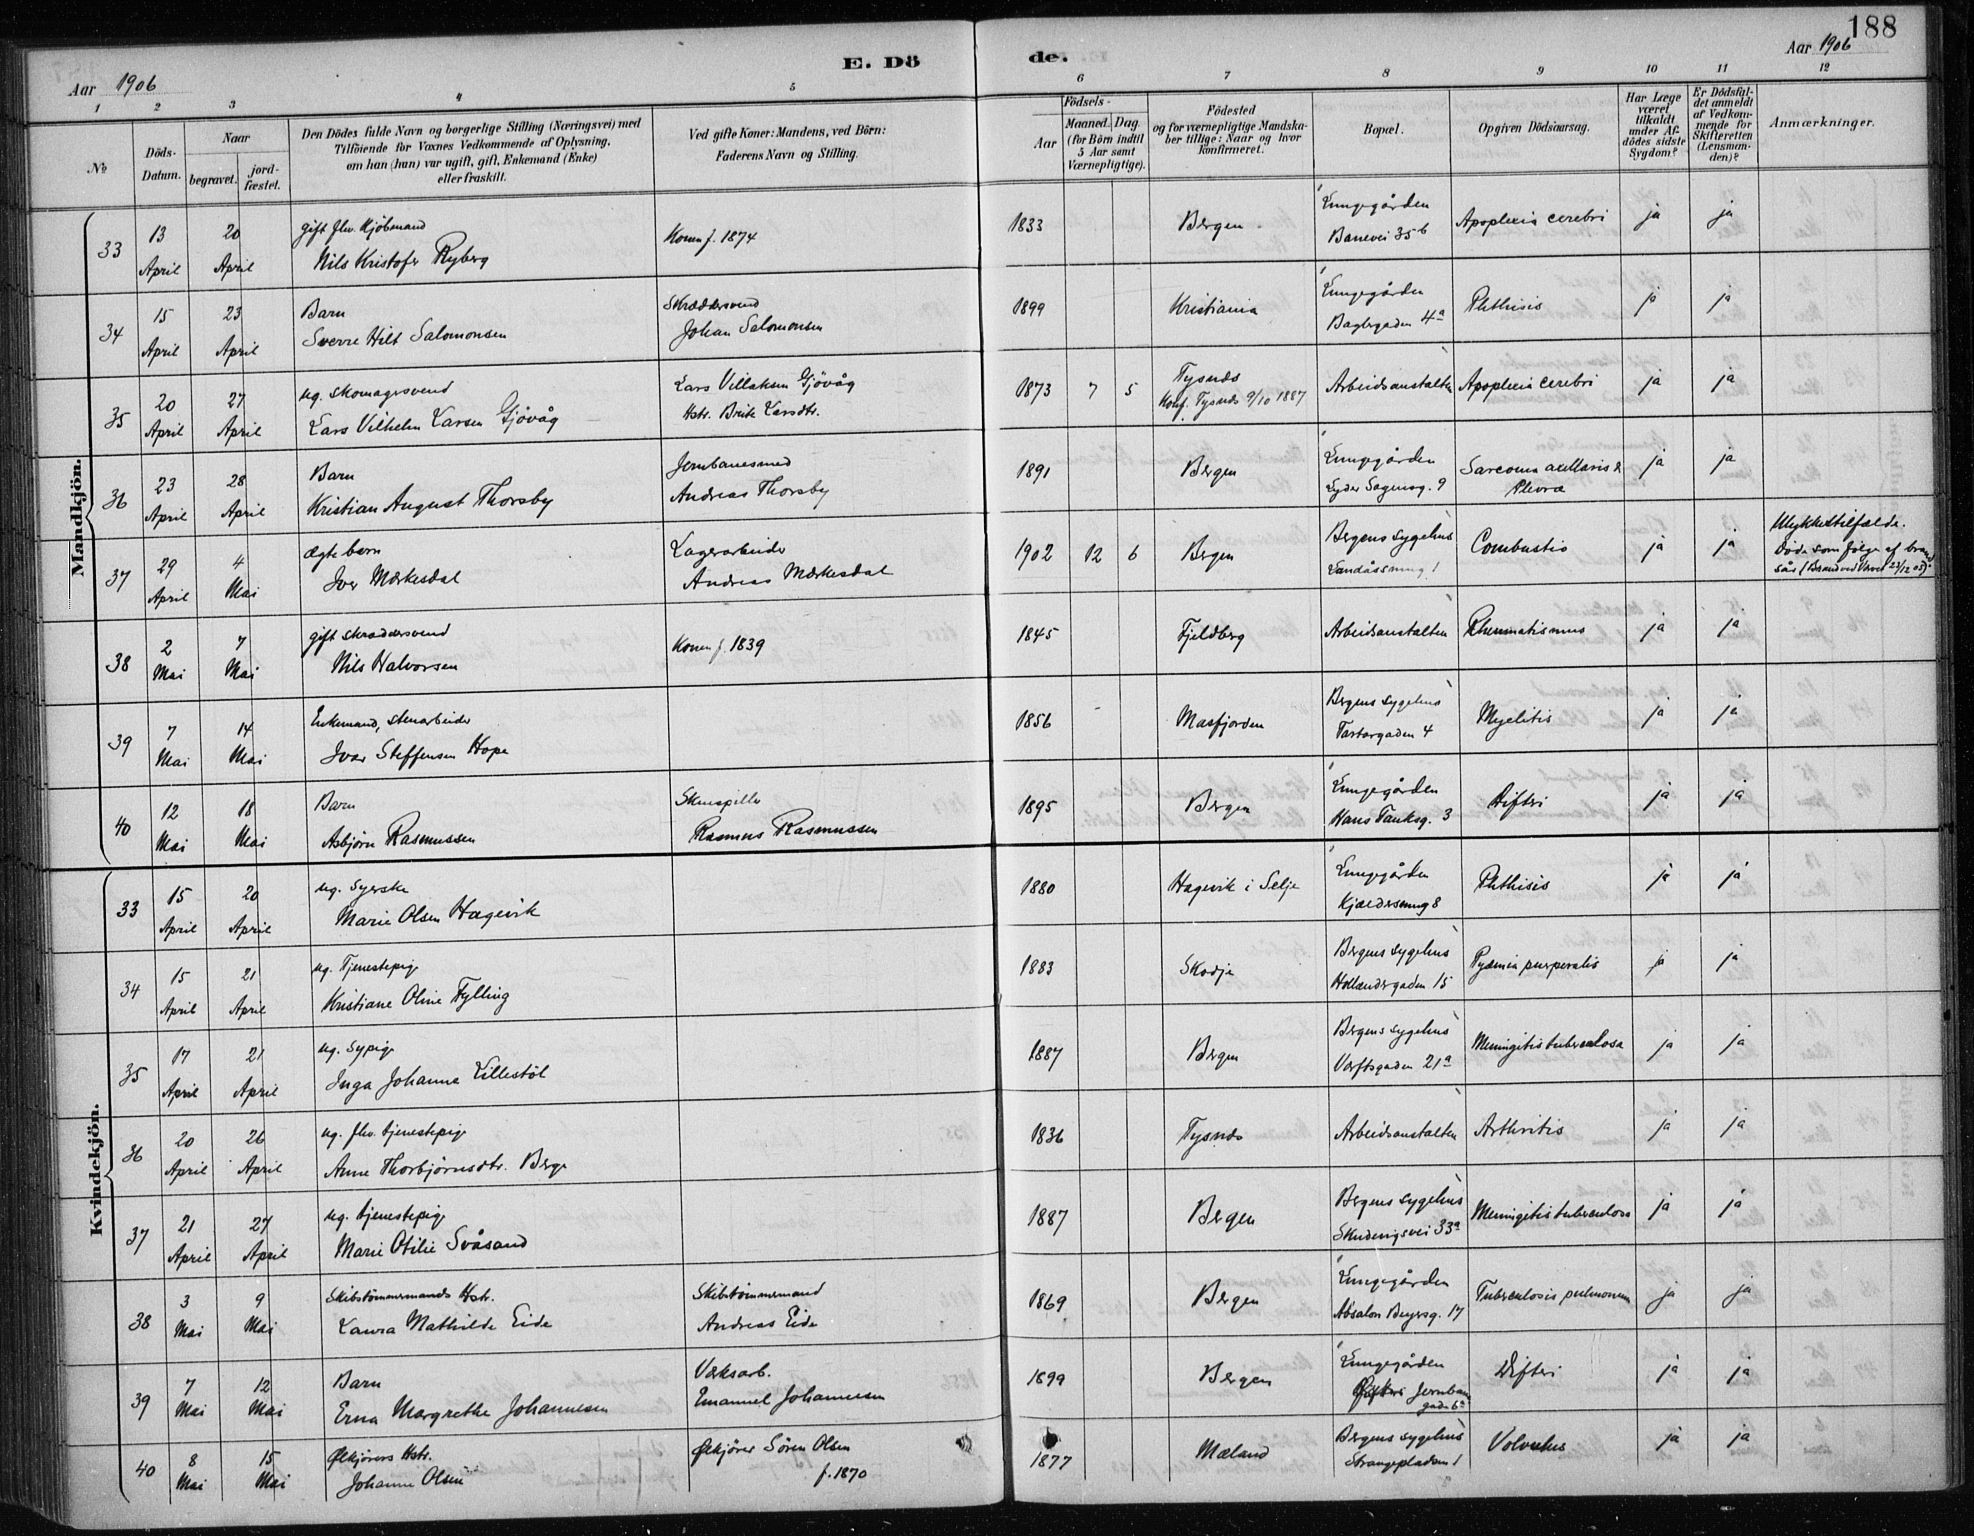 188
E. Dö de.
Aar 1906
Aar 1906
1 2 3 4 5 6 7 8 9 10 11 12
No
Döds-Datum.
Naar
begravet.
jord-fæstet.
Den Dödes fulde Navn og borgerlige Stilling (Næringsvei) med
Tilföiende for Voxnes Vedkommende af Oplysning,
om han (hun) var ugift, gift, Enkemand (Enke)
eller fraskilt.
Ved gifte Koner: Mandens, ved Börn:
Faderens Navn og Stilling.
Födsels-
Aar
Maaned. Dag.
(for Börn indtil
5 Aar samt
Værnepligtige).
Födested
og for værnepligtige Mandska-
ber tillige: Naar og hvor
konfirmeret.
Bopæl.
Opgiven Dödsaarsag.
Har Læge
været
tilkaldt
under Af-
dödes sidste
Sygdom?
Er Dödsfal-
det anmeldt
af Vedkom-
mende for
Skifteretten
(Lensman-
den)?
Anmærkninger.
Mandkjön.
33 13 April 20 April gift fhv. Kjøbmand
Nils Kristofer Ryberg
Konen f. 1874
1833 Bergen Lungegården
Banevei 35 b
Apoplexia cerebri ja ja
34 15 April 23 April Barn
Sverre Hilt Salomonsen
Skræddersvend
Johan Salomonsen
1899 Kristiania Lungegården
Baglergaden 4a
Phthisis ja ja
35 20 April 27 April ug. skomagersvend
Lars Vilhelm Larsen Gjövåg
Lars Villaksen Gjövåg
Hstr. Brite Larsdtr.
1873 7 5 Tysnes
Konf. Tysnes 9/10 1887
Arbeidsanstalten Apoplexia cerebri ja ja
36 23 April 28 April Barn
Kristian August Thorsby
Jernbanesmed
Andreas Thorsby
1891 Bergen Lungegården
Lyder Sagensg. 9
Sarcoma axillaris &
Plevra
ja ja
37 29 April 4 Mai ægte barn
Iver Mærkesdal
Lagerarbeider
Andreas Mærkesdal
1902 12 6 Bergen Bergens sygehus
Landåssmug 1
Combustio ja ja
Ulykkestilfælde.
Døde som følge af brand
sår
38 2 Mai 7 Mai gift skræddersvend
Nils Halvorsen
Konen f. 1839
1845 Fjeldberg Arbeidsanstalten Rheumatismus ja ja
39 7 Mai 14 Mai Enkemand, stenarbeider
Ivar Steffensen Hope
1856 Masfjorden Bergens sygehus
Tartargaden 4
Myelitis ja ja
40 12 Mai 18 Mai Barn
Asbjørn Rasmussen
Skuespiller
Rasmus Rasmussen
1895 Bergen Lungegården
Hans Tanksg. 3
Difteri ja ja
Kvindekjön.
33 15 April 20 April ug. syerske
Marie Olsen Hagevik
1880 Hagevik i Selje Lungegården
Kjeldersmug 8
Phthisis ja ja
34 15 April 21 April ug. Tjenestepige
Kristiane Oline Fylling
1883 Skodje Bergens sygehus
Hollændergaden 15
Pyæmia purperalis ja ja
35 17 April 21 April ug. sypige
Inga Johanne Lillestöl
1887 Bergen Bergens sygehus
Verftsgaden 21a
Meningitis tuberculosa ja ja
36 20 April 26 April ug. fhv. tjenestepige
Anne Thorbjørnsdtr. Berge
1836 Tysnes Arbeidsanstalten Arthritis ja ja
37 21 April 27 April ug. tjenestepige
Marie Otilie Svåsand
1887 Bergen Bergens sygehus
Skudevigsvei 33a
Meningitis tuberculosa ja ja
38 3 Mai 9 Mai Skibstømmermands Hstr.
Laura Mathilde Eide
Skibstømmermand
Andreas Eide
1869 Bergen Lungegården
Absalon Beyersg. 17
Tuberculosis pulmonum ja ja
39 7 Mai 12 Mai Barn
Erna Margrethe Johannesen
Værksarb.
Emanuel Johannesen
1899 Bergen Lungegården
Jernbane
gade 6a
Difteri ja ja
40 8 Mai 15 Mai Ølkjørers Hstr.
Johanne Olsen
Ølkjører Søren Olsen
f. 1870
1877 Mæland Bergens sygehus
Strangepladsen 1
Volvulus ja ja